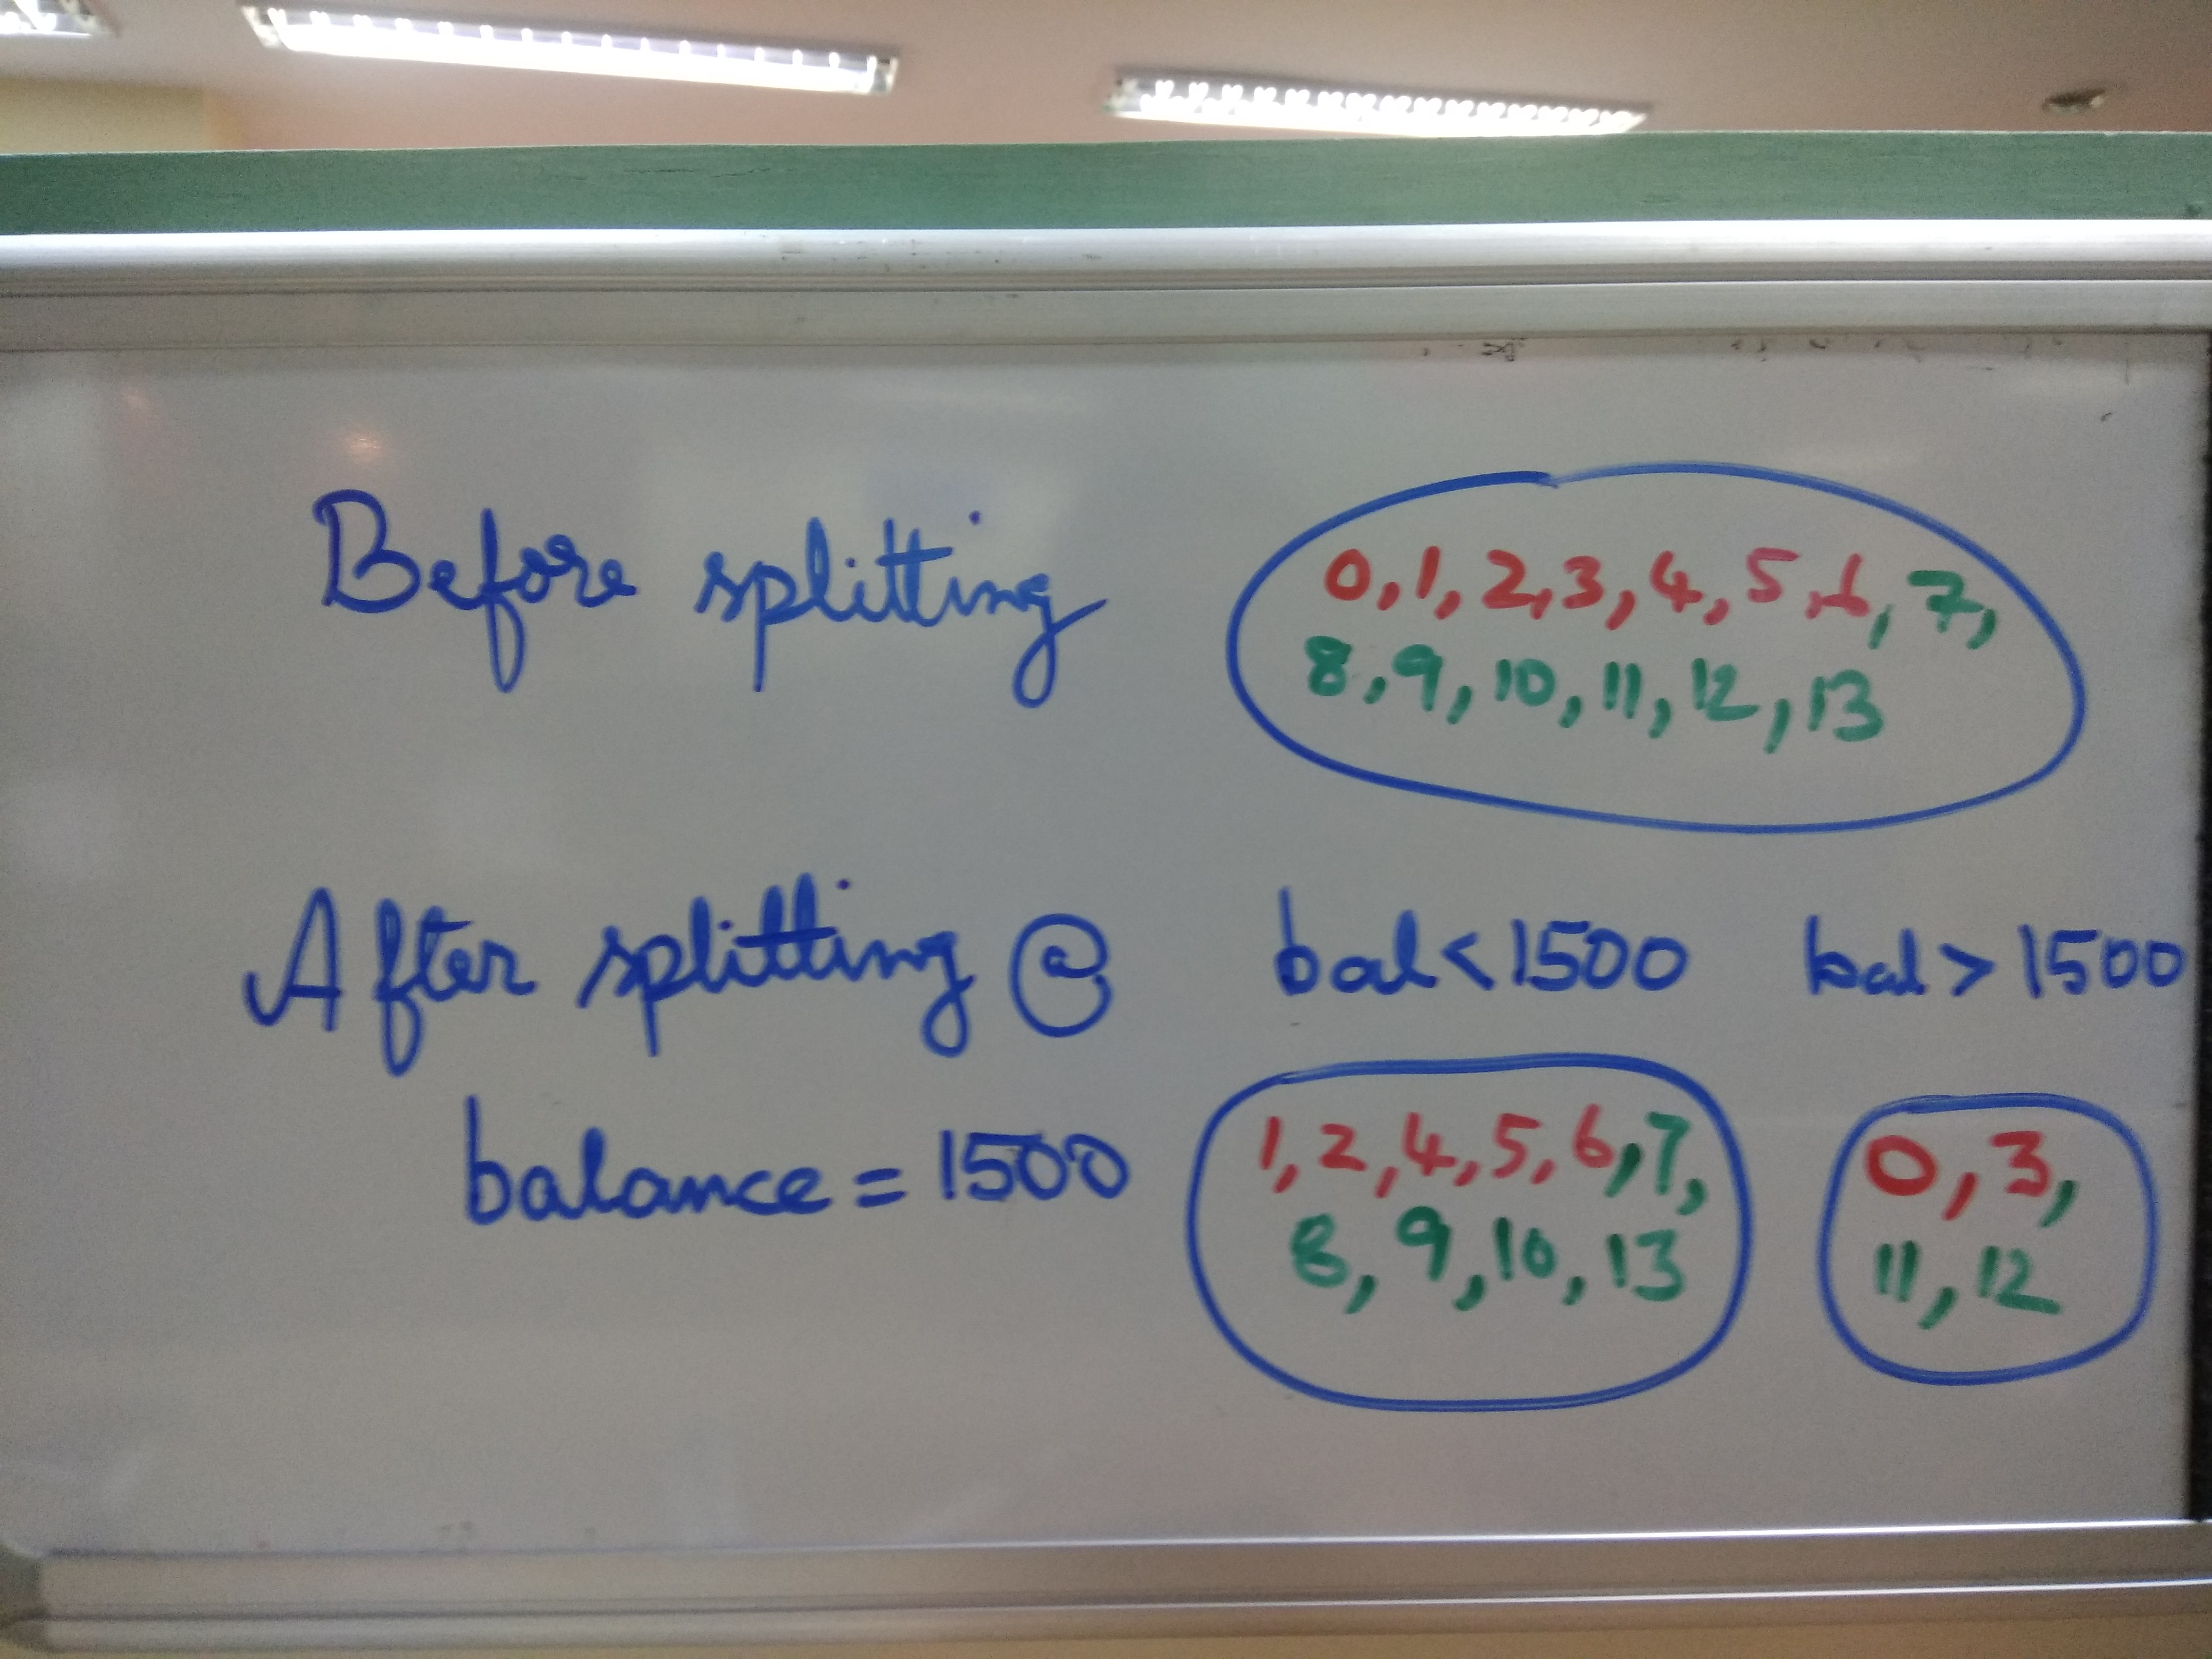 Before splitting
0, 1, 2, 3, 4, 5, 6, 7,
8, 9, 10, 11, 12, 13
After splitting @
balance = 1500
bal < 1500
1, 2, 4, 5, 6, 7,
8, 9, 10, 13
bal > 1500
0, 3,
11, 12